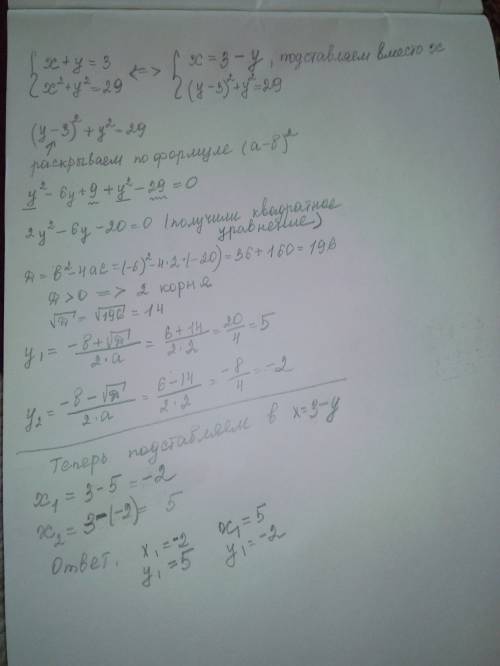 { x + y = 3 <=> { x = 3 - y, подставляем вместо x
{ x² + y² = 29 { (y-3)² + y² = 29
(y-3)² + y² = 29
раскрываем по формуле (а-в)²
y² - 6y + 9 + y² - 29 = 0
2y² - 6y - 20 = 0 (получили квадратное
уравнение)
D = в² - 4ас = (-6)² - 4·2·(-20) = 36 + 160 = 196
D > 0 => 2 корня
√D = √196 = 14
y₁ = (-в + √D)/(2·а) = (6+14)/(2·2) = 20/4 = 5
y₂ = (-в - √D)/(2·а) = (6-14)/(2·2) = -8/4 = -2
Теперь подставляем в x = 3-y
x₁ = 3 - 5 = -2
x₂ = 3 - (-2) = 5
Ответ. x₁ = -2 x₁ = 5
y₁ = 5 y₁ = -2